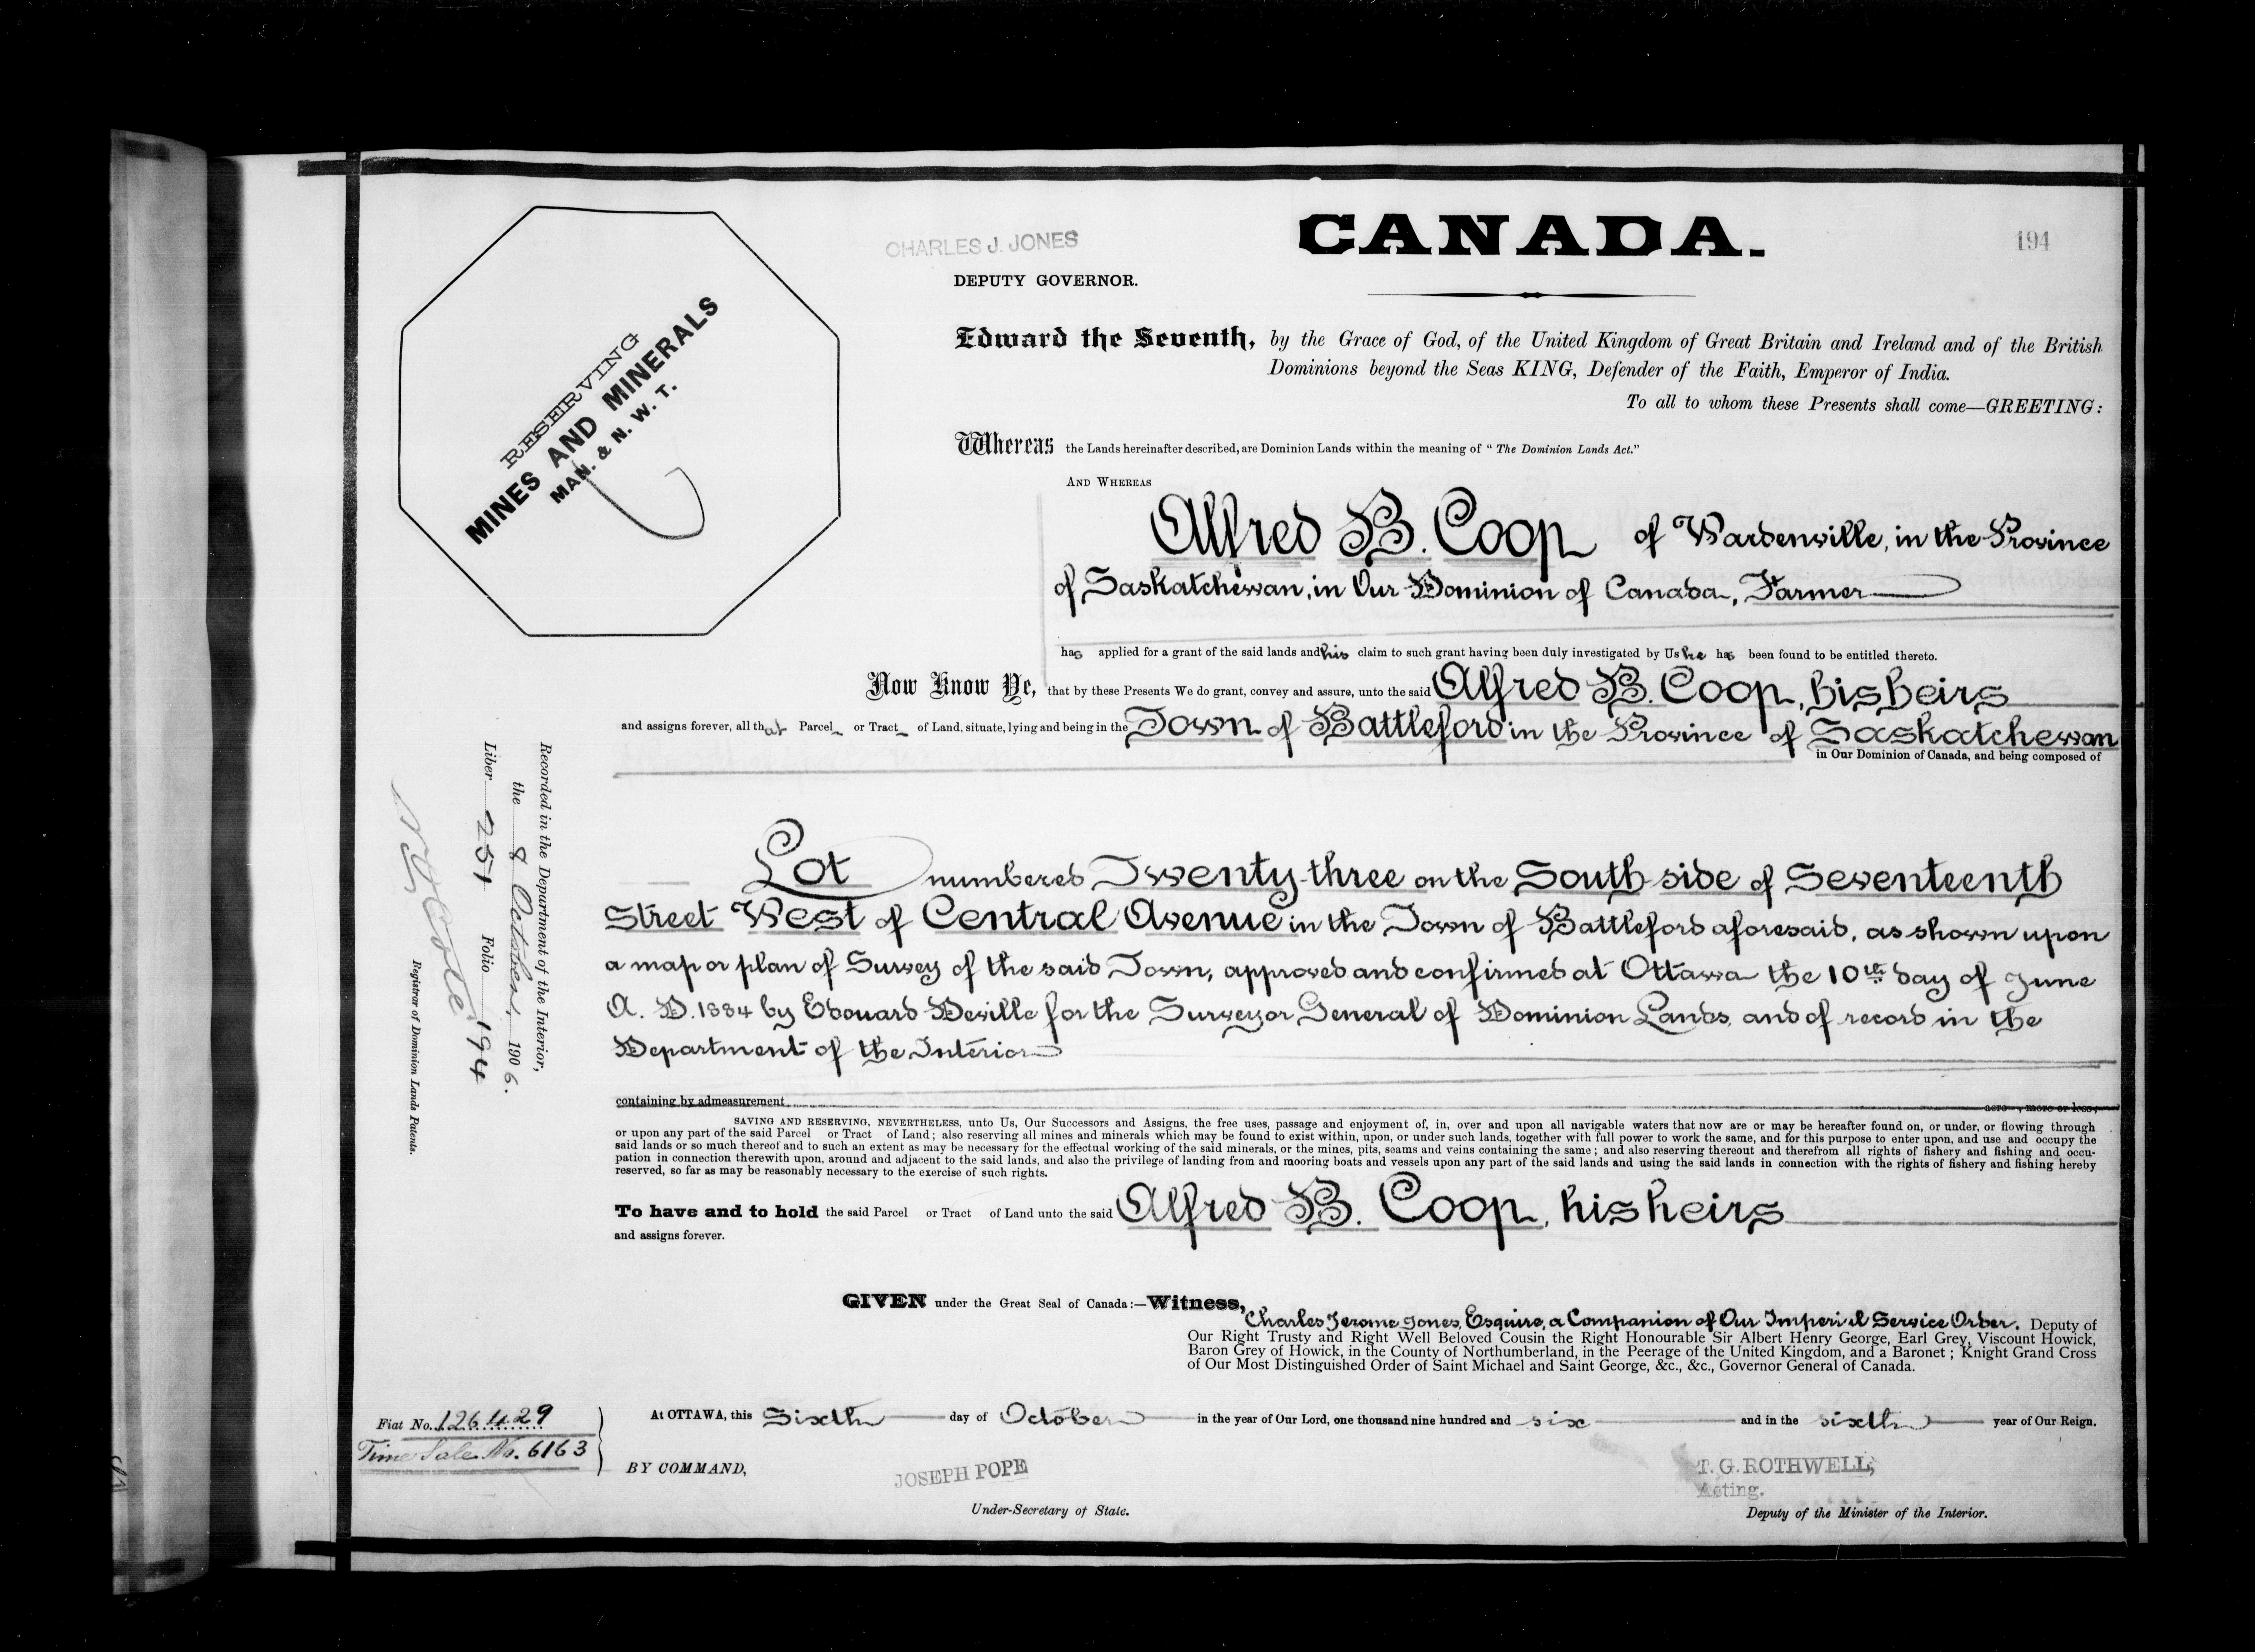 CHARLES J. JONES
DEPUTY GOVERNOR.
CANADA.
194
RESERVING
MINES AND MINERALS
MAN. & N. W. T.
Edward the Seventh, by the Grace of God, of the United Kingdom of Great Britain and Ireland and of the British
Dominions beyond the Seas KING, Defender of the Faith, Emperor of India.
To all to whom these Presents shall come—GREETING:
Whereas the Lands hereinafter described, are Dominion Lands within the meaning of " The Dominion Lands Act."
AND WHEREAS
Alfred B. Coop of Wardenville, in the Province
of Saskatchewan, in Our Dominion of Canada, Farmer
has applied for a grant of the said lands and his claim to such grant having been duly investigated by Us he has been found to be entitled thereto.
Now Know Ye, that by these Presents We do grant, convey and assure, unto the said Alfred B. Coop, his heirs
and assigns forever, all that Parcel or Tract of Land, situate, lying and being in the Town of Battleford in the Province of Saskatchewan
in Our Dominion of Canada, and being composed of
Lot numbered Twenty-three on the South side of Seventeenth
Street West of Central Avenue in the Town of Battleford aforesaid, as shown upon
a map or plan of Survey of the said Town, approved and confirmed at Ottawa the 10th day of June
A. D. 1884 by Edouard Deville for the Surveyor General of Dominion Lands, and of record in the
Department of the Interior
containing by admeasurement acre , more or less;
SAVING AND RESERVING, NEVERTHELESS, unto Us, Our Successors and Assigns, the free uses, passage and enjoyment of, in, over and upon all navigable waters that now are or may be hereafter found on, or under, or flowing through
or upon any part of the said Parcel or Tract of Land; also reserving all mines and minerals which may be found to exist within, upon, or under such lands, together with full power to work the same, and for this purpose to enter upon, and use and occupy the
said lands or so much thereof and to such an extent as may be necessary for the effectual working of the said minerals, or the mines, pits, seams and veins containing the same; and also reserving thereout and therefrom all rights of fishery and fishing and occu-
pation in connection therewith upon, around and adjacent to the said lands, and also the privilege of landing from and mooring boats and vessels upon any part of the said lands and using the said lands in connection with the rights of fishery and fishing hereby
reserved, so far as may be reasonably necessary to the exercise of such rights.
To have and to hold the said Parcel or Tract of Land unto the said Alfred B. Coop, his heirs
and assigns forever.
GIVEN under the Great Seal of Canada:—Witness,
Charles Jerome Jones, Esquire, a Companion of Our Imperial Service Order. Deputy of
Our Right Trusty and Right Well Beloved Cousin the Right Honourable Sir Albert Henry George, Earl Grey, Viscount Howick,
Baron Grey of Howick, in the County of Northumberland, in the Peerage of the United Kingdom, and a Baronet; Knight Grand Cross
of Our Most Distinguished Order of Saint Michael and Saint George, &c., &c., Governor General of Canada.
At OTTAWA, this Sixth day of October in the year of Our Lord, one thousand nine hundred and six and in the sixth year of Our Reign.
Fiat No. 126429
Time Sale No. 6163
BY COMMAND,
JOSEPH POPE
Under-Secretary of State.
T. G. ROTHWELL,
Acting.
Deputy of the Minister of the Interior.
Recorded in the Department of the Interior,
the 8 October, 1906.
Liber 251 Folio 194
Registrar of Dominion Lands Patents.